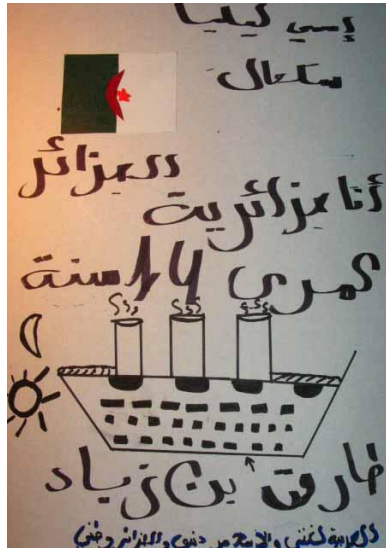 إسمي ليليا
الجزائر
أنا جزائرية
عمري 14 سنة
طارق بن زياد
العربية لغتي والاسلام ديني والجزائر وطني